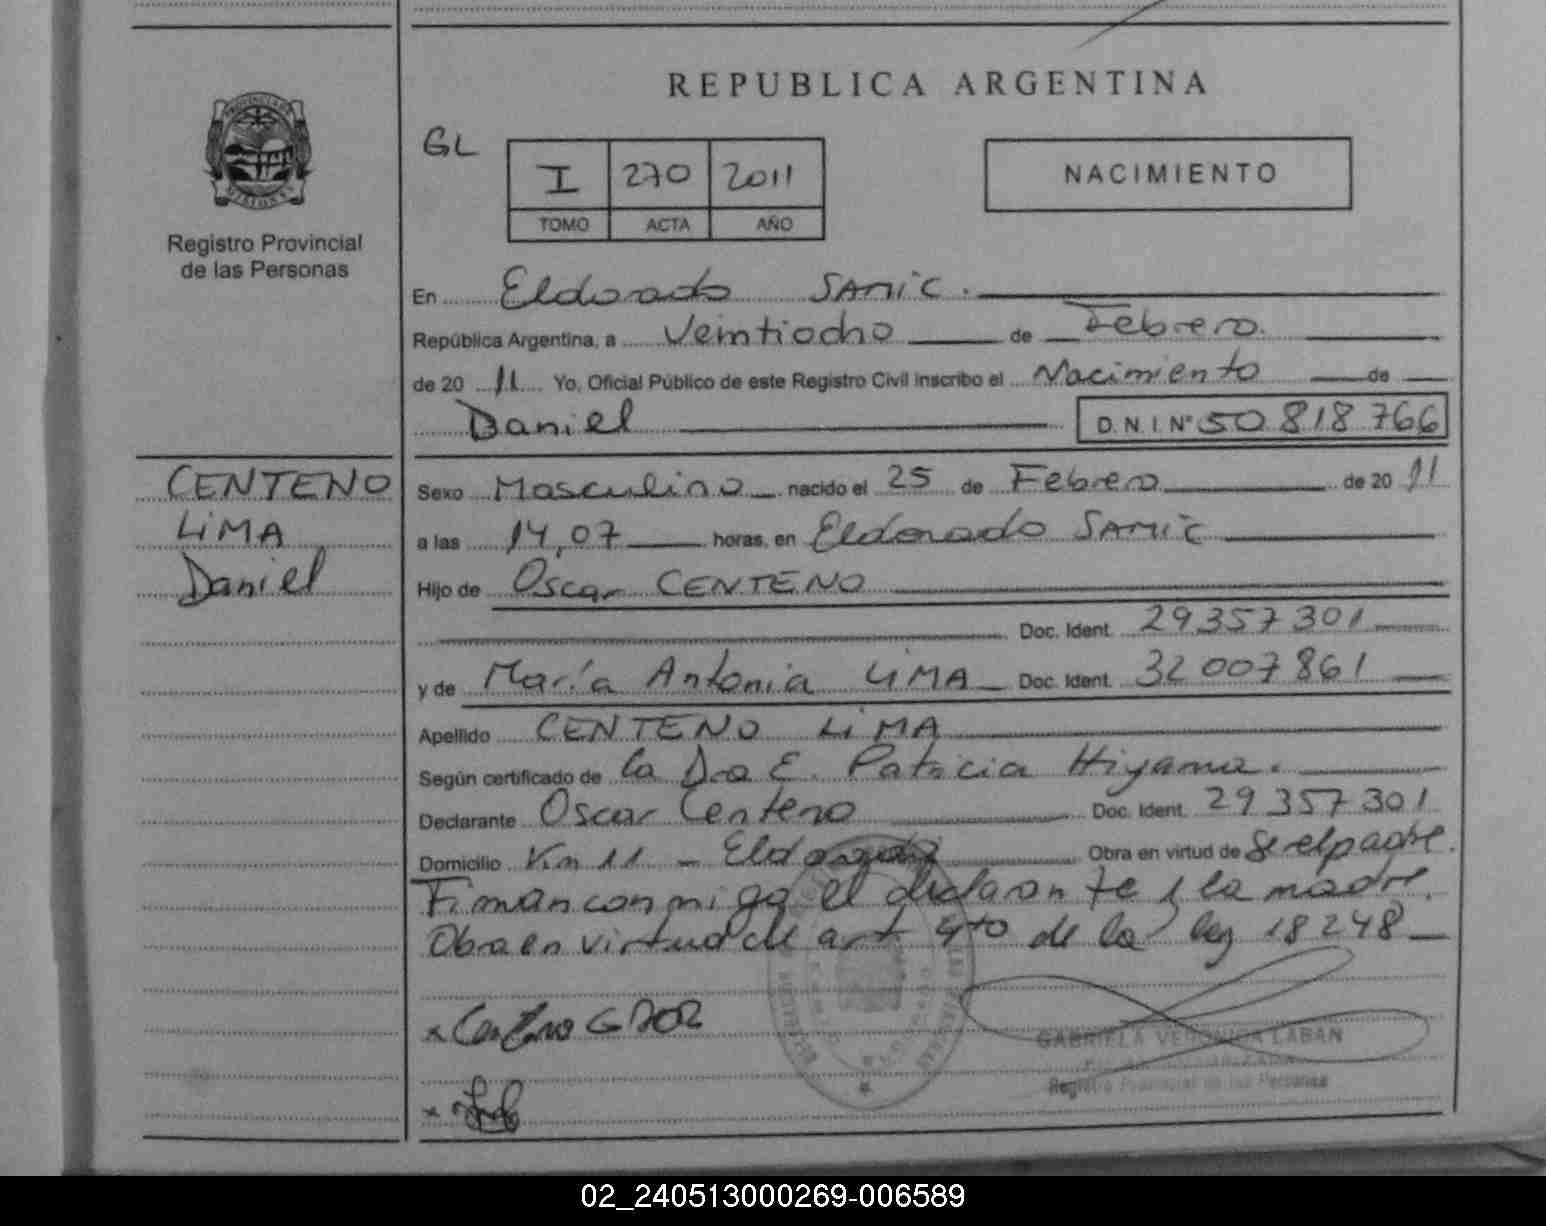 REPUBLICA ARGENTINA
GL
I 270 2011
TOMO ACTA AÑO
NACIMIENTO
Registro Provincial
de las Personas
En Eldorado SAMIC.
República Argentina, a Veintiocho de Febrero.
de 20 11 Yo, Oficial Público de este Registro Civil Inscribo el Nacimiento de
Daniel D.N.I Nº 50 818 766
CENTENO
LiMA
Daniel
Sexo Masculino nacido el 25 de Febrero de 20 11
a las 14,07 horas, en Eldorado SAMIC
Hijo de Oscar CENTENO
Doc. Ident. 29357301
y de María Antonia LIMA Doc. Ident. 32007861
Apellido CENTENO LiMA
Según certificado de la Dra E. Patricia Hiyama.
Declarante Oscar Centeno Doc. Ident. 29357301
Domicilio Km 11 - Eldorado Obra en virtud de Se el padre.
Firman conmigo el declarante y la madre.
Obra en virtud de art 4to de la ley 18248
x Centeno
x
GABRIELA VERONICA LABAN
Registro Provincial de las Personas
02_240513000269-006589